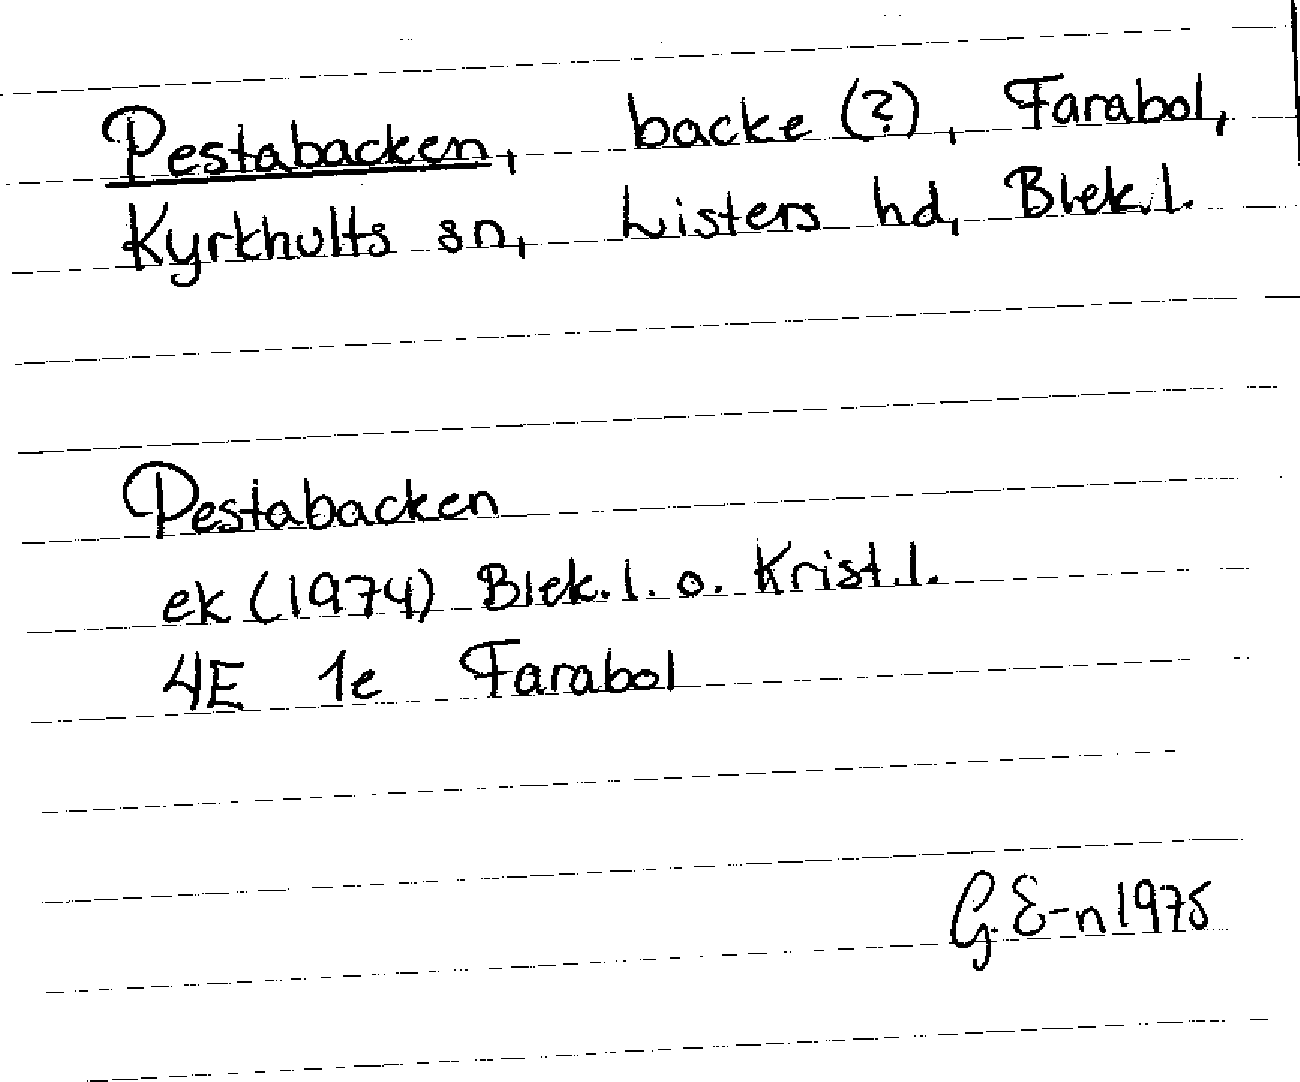 Pestabacken, backe (?), Farabol,
Kyrkhults sn, Listers hd, Blek.l.
Pestabacken
ek (1974) Blek.l. o. Krist.l.
4E 1e Farabol
G.E-n 1975